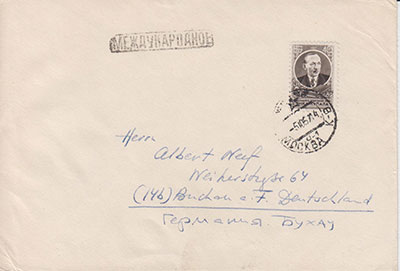 МЕЖДУНАРОДНОЕ
МОСКВА
Herrn
Albert Neef
Weiherstraße 64
(14b) Buchau a. F. Deutschland
Германия. Бухау